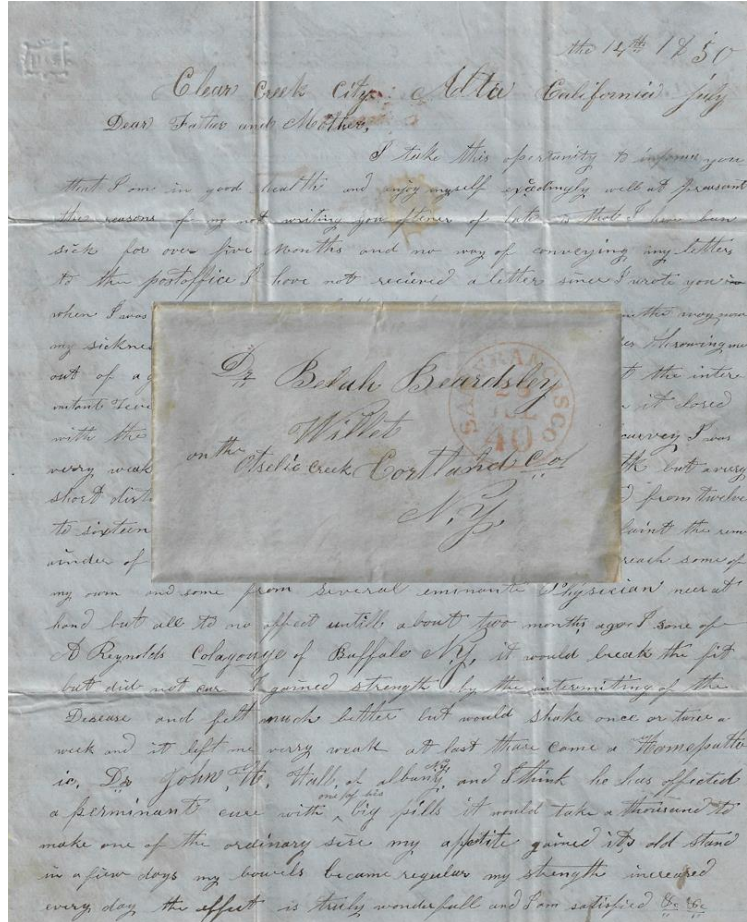 the 14th 1850
Clear Creek City Alta California July
Dear Father and Mother,
I take this opertunity to inform you
that I am in good health and enjoy myself excedingly well at preasant
the reasons of my not writing you oftener of late is that I have ben
sick for over five Months and no way of conveying my letters
to the postoffice I have not recieved a letter since I wrote you
when I was
my sickne
out of a
with the
very weak
short dist
to sixteen
ainder of
Dr Belah Beardsley
Willet
on the Otselic Creek Cortland Co
N.Y.
SAN FRANCISCO
JUL
40
the way
throwing me
the inter
it closed
I was
but a very
from twelve
the rem
reach some of
my own and some from several eminante Physician neer at
hand but all to no affect untill about two months ago I some of
A Reynolds Colagouge of Buffalo N.Y. it would break the fit
but did not cur I gained strength by the intermiting of the
Disease and felt much better but would shake once or twice a
week and it left me verry weak at last thare come a Homepatho
ic, Dr John, H, Hall, of albany, N.Y. and I think he has effected
a perminant cure with one of his big pills it would take a thousand to
make one of the ordinary size my appetite gained its old stand
in a few days my bowels became regular my strength increased
every day the effect is truly wonderfull and I am satisfied &c &c